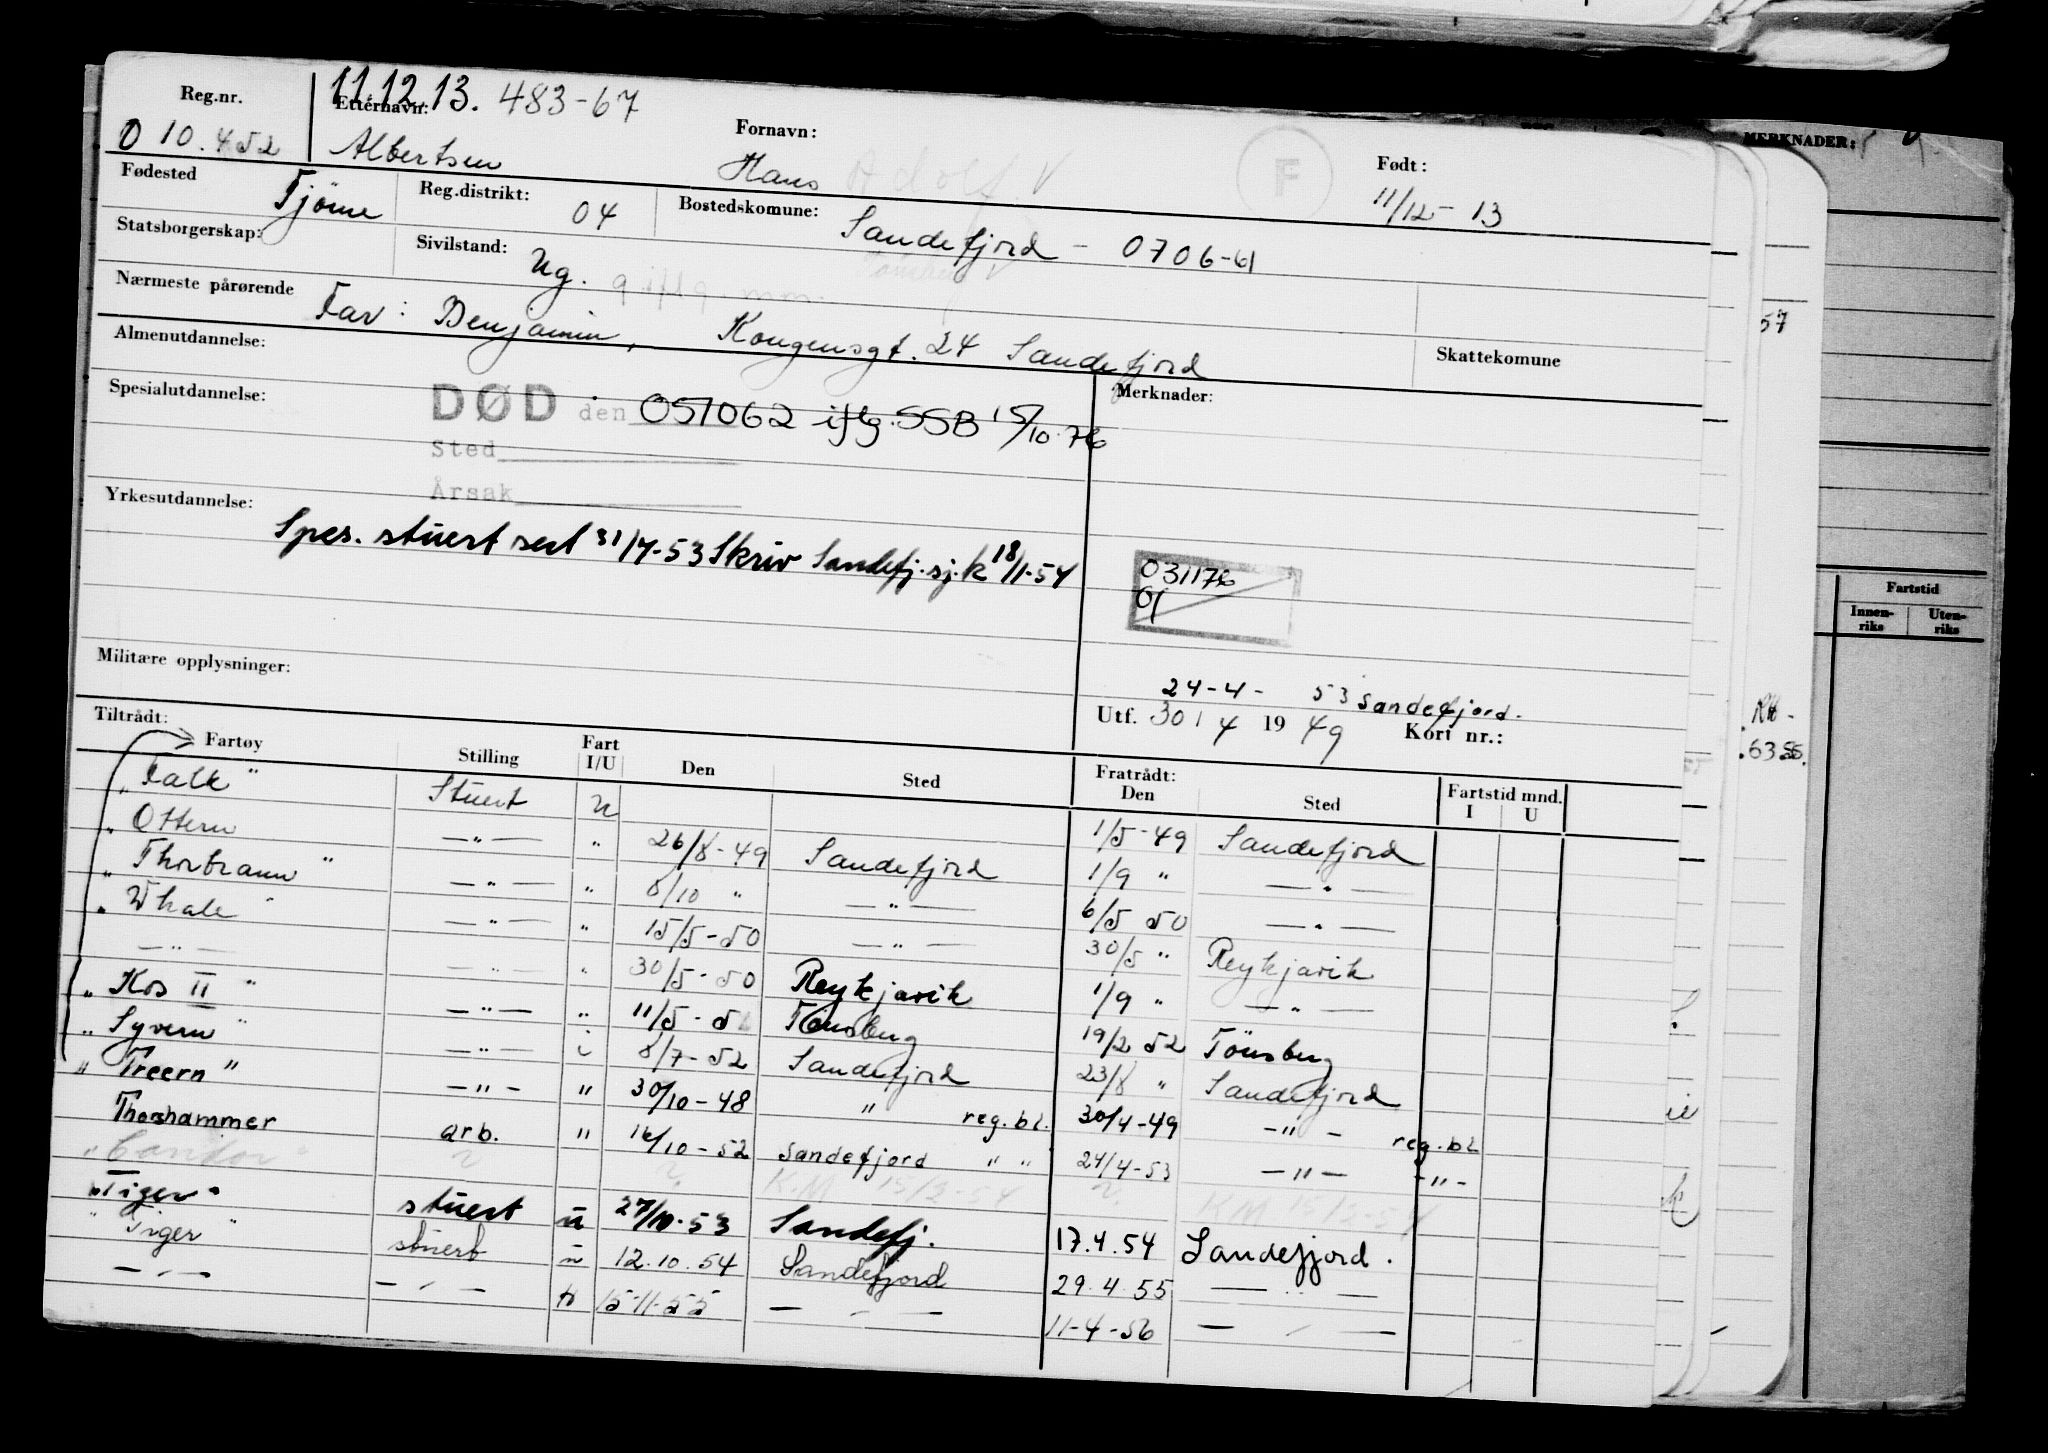 Reg.nr. 11.12.13. 483-67
Etternavn: Fornavn: Født:
O 10.452 Albertsen Hans Adolf V F 11/12-13
Fødested Tjöme Reg.distrikt: 04 Bostedskomune: Sandefjord - 0706-61
Statsborgerskap: Sivilstand: Ug. gift V
Nærmeste pårørende Far: Benjamin, Kongensgt. 24 Sandefjord
Almenutdannelse: Skattekomune
Spesialutdannelse: DØD den 051062 iflg. SSB 15/10.76 Merknader:
Sted
Årsak
Yrkesutdannelse: Spes. stuert sert 31/7-53 Skriv Sandefj.sj.k 18/11-54
031176
01
Militære opplysninger:
24-4- 53 Sandefjord.
Utf. 30/4 1949 Kort nr.:
Tiltrådt: Fratrådt:
Fartøy Stilling Fart I/U Den Sted Den Sted Fartstid mnd. I U
"Falk" Stuert U 1/5-49 Sandefjord
" Ottern —"— " 26/8-49 Sandefjord 1/9 " —"—
" Thorbrann " —"— " 8/10 " —"— 6/5 50 —"—
" Whale " —"— " 15/5-50 —"— 30/5 " Reykjavik
—"— —"— " 30/5-50 Reykjavik 1/9 " —"—
" Kos II " —"— " 11/5-5 Tönsberg 19/2 52 Tönsberg
" Syvern " —"— " 8/7-52 Sandefjord 23/8 " Sandefjord
" Treern " —"— " 30/10-48 " reg.bl. 30/4-49 —"— reg.bl
Thorshammer arb. " 16/10-52 Sandefjord " " 24/4-53 —"— —"—
K.M 15/2-54 KM 15/2-54
"Tiger" stuert u 27/10-53 Sandefj. 17.4.54 Sandefjord.
" Tiger " stuert u 12.10.54 Sandefjord 29.4.55 —"—
—"— —"— 15-11-55 —"— 11-4-56 —"—
MERKNADER:
57
Fartstid
Innenriks Utenriks